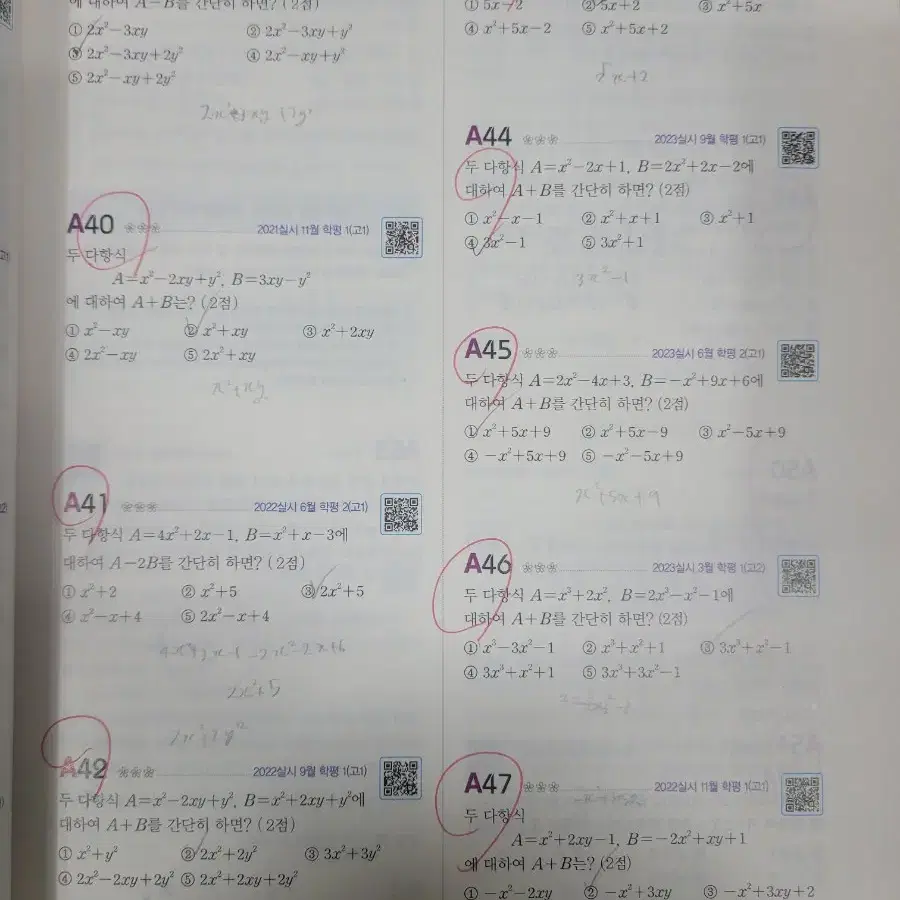 에 대하여 A-B를 간단히 하면? (2점)
① 2x²-3xy ② 2x²-3xy+y²
③ 2x²-3xy+2y² ④ 2x²-xy+y²
⑤ 2x²-xy+2y²
A40 2021실시 11월 학평 1(고1)
두 다항식
A=x²-2xy+y², B=3xy-y²
에 대하여 A+B는? (2점)
① x²-xy ② x²+xy ③ x²+2xy
④ 2x²-xy ⑤ 2x²+xy
x²+xy
A41 2022실시 6월 학평 2(고1)
두 다항식 A=4x²+2x-1, B=x²+x-3에
대하여 A-2B를 간단히 하면? (2점)
① x²+2 ② x²+5 ③ 2x²+5
④ x²-x+4 ⑤ 2x²-x+4
4x²+2x-1-2x²-2x+6
2x²+5
2x²+2y²
A42 2022실시 9월 학평 1(고1)
두 다항식 A=x²-2xy+y², B=x²+2xy+y²에
대하여 A+B를 간단히 하면? (2점)
① x²+y² ② 2x²+2y² ③ 3x²+3y²
④ 2x²-2xy+2y² ⑤ 2x²+2xy+2y²
① 5x-2 ② 5x+2 ③ x²+5x
④ x²+5x-2 ⑤ x²+5x+2
5x+2
A44 2023실시 9월 학평 1(고1)
두 다항식 A=x²-2x+1, B=2x²+2x-2에
대하여 A+B를 간단히 하면? (2점)
① x²-x-1 ② x²+x+1 ③ x²+1
④ 3x²-1 ⑤ 3x²+1
3x²-1
A45 2023실시 6월 학평 2(고1)
두 다항식 A=2x²-4x+3, B=-x²+9x+6에
대하여 A+B를 간단히 하면? (2점)
① x²+5x+9 ② x²+5x-9 ③ x²-5x+9
④ -x²+5x+9 ⑤ -x²-5x+9
x²+5x+9
A46 2023실시 3월 학평 1(고2)
두 다항식 A=x³+2x², B=2x³-x²-1에
대하여 A+B를 간단히 하면? (2점)
① x³-3x²-1 ② x³+x²+1 ③ 3x³+x²-1
④ 3x³+x²+1 ⑤ 3x³+3x²-1
A47 2022실시 11월 학평 1(고1)
두 다항식
A=x²+2xy-1, B=-2x²+xy+1
에 대하여 A+B는? (2점)
① -x²-2xy ② -x²+3xy ③ -x²+3xy+2